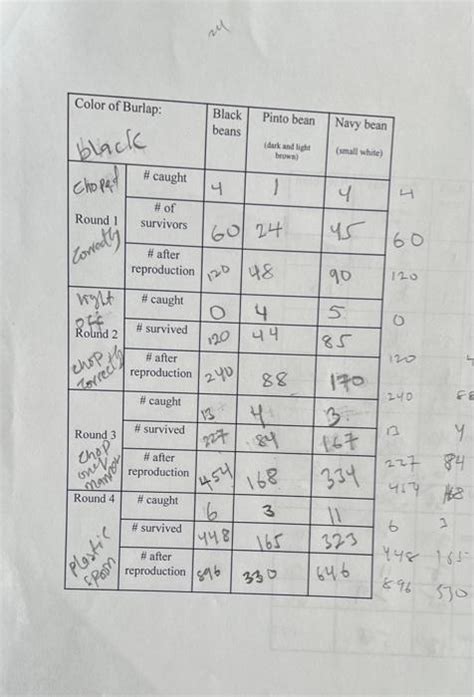 24
Color of Burlap: Black beans Pinto bean (dark and light brown) Navy bean (small white)
black
# caught 4 1 4 4
Round 1 # of survivors 60 24 45 60
correctly
# after reproduction 120 48 90 120
light off # caught 0 4 5 0
Round 2 # survived 120 44 85 120
correctly
# after reproduction 240 88 170 240
# caught 13 4 3 13 4
Round 3 # survived 227 84 167 227 84
chop
# after reproduction 454 168 334 454 168
Round 4 # caught 6 3 11 6 3
# survived 448 165 323 448 165
plastic spoon # after reproduction 896 330 646 896 530